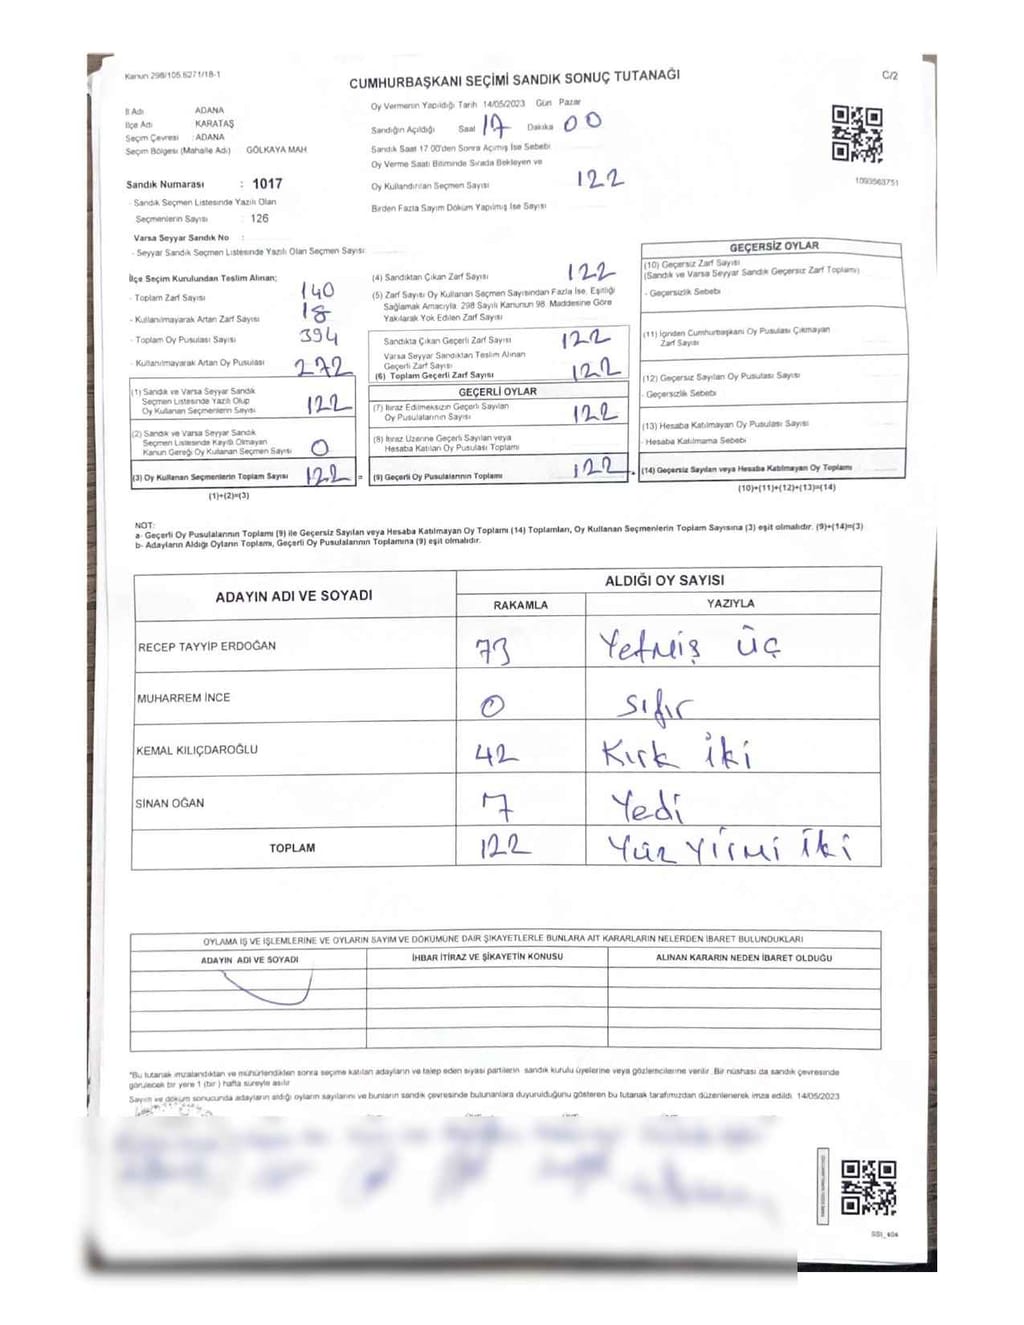 Kanun 298/105 6271/18-1
CUMHURBAŞKANI SEÇİMİ SANDIK SONUÇ TUTANAĞI
C/2
İl Adı ADANA
İlçe Adı KARATAŞ
Seçim Çevresi : ADANA
Seçim Bölgesi (Mahalle Adı) GÖLKAYA MAH
Oy Vermenin Yapıldığı Tarih 14/05/2023 Gün Pazar
Sandığın Açıldığı Saat 17 Dakika 00
Sandık Saat 17.00'den Sonra Açımış İse Sebebi
Oy Verme Saati Bitiminde Sırada Bekleyen ve
Oy Kullandırılan Seçmen Sayısı 122
Birden Fazla Sayım Döküm Yapılmış İse Sayısı
1093563751
Sandık Numarası : 1017
- Sandık Seçmen Listesinde Yazılı Olan
Seçmenlerin Sayısı 126
Varsa Seyyar Sandık No :
- Seyyar Sandık Seçmen Listesinde Yazılı Olan Seçmen Sayısı
İlçe Seçim Kurulundan Teslim Alınan;
- Toplam Zarf Sayısı 140
- Kullanılmayarak Artan Zarf Sayısı 18
- Toplam Oy Pusulası Sayısı 394
- Kullanılmayarak Artan Oy Pusulası 272
(1) Sandık ve Varsa Seyyar Sandık
Seçmen Listesinde Yazılı Olup
Oy Kullanan Seçmenlerin Sayısı 122
(2) Sandık ve Varsa Seyyar Sandık
Seçmen Listesinde Kayıtlı Olmayan
Kanun Gereği Oy Kullanan Seçmen Sayısı 0
(3) Oy Kullanan Seçmenlerin Toplam Sayısı 122 =
(1)+(2)=(3)
(4) Sandıktan Çıkan Zarf Sayısı 122
(5) Zarf Sayısı Oy Kullanan Seçmen Sayısından Fazla İse, Eşitliği
Sağlamak Amacıyla, 298 Sayılı Kanunun 98. Maddesine Göre
Yakılarak Yok Edilen Zarf Sayısı
Sandıkta Çıkan Geçerli Zarf Sayısı 122
Varsa Seyyar Sandıktan Teslim Alınan
Geçerli Zarf Sayısı
(6) Toplam Geçerli Zarf Sayısı 122
GEÇERLİ OYLAR
(7) İtiraz Edilmeksizin Geçerli Sayılan
Oy Pusulalarının Sayısı 122
(8) İtiraz Üzerine Geçerli Sayılan veya
Hesaba Katılan Oy Pusulası Toplamı
(9) Geçerli Oy Pusulalarının Toplamı 122
GEÇERSİZ OYLAR
(10) Geçersiz Zarf Sayısı
(Sandık ve Varsa Seyyar Sandık Geçersiz Zarf Toplamı)
- Geçersizlik Sebebi
(11) İçinden Cumhurbaşkanı Oy Pusulası Çıkmayan
Zarf Sayısı
(12) Geçersiz Sayılan Oy Pusulası Sayısı
- Geçersizlik Sebebi
(13) Hesaba Katılmayan Oy Pusulası Sayısı
- Hesaba Katılmama Sebebi
(14) Geçersiz Sayılan veya Hesaba Katılmayan Oy Toplamı
(10)+(11)+(12)+(13)=(14)
NOT:
a- Geçerli Oy Pusulalarının Toplamı (9) ile Geçersiz Sayılan veya Hesaba Katılmayan Oy Toplamı (14) Toplamları, Oy Kullanan Seçmenlerin Toplam Sayısına (3) eşit olmalıdır. (9)+(14)=(3)
b- Adayların Aldığı Oyların Toplamı, Geçerli Oy Pusulalarının Toplamına (9) eşit olmalıdır.
ADAYIN ADI VE SOYADI
ALDIĞI OY SAYISI
RAKAMLA YAZIYLA
RECEP TAYYİP ERDOĞAN 73 Yetmiş üç
MUHARREM İNCE 0 Sıfır
KEMAL KILIÇDAROĞLU 42 Kırk iki
SİNAN OĞAN 7 Yedi
TOPLAM 122 Yüz Yirmi İki
OYLAMA İŞ VE İŞLEMLERİNE VE OYLARIN SAYIM VE DÖKÜMÜNE DAİR ŞİKAYETLERLE BUNLARA AİT KARARLARIN NELERDEN İBARET BULUNDUKLARI
ADAYIN ADI VE SOYADI İHBAR İTİRAZ VE ŞİKAYETİN KONUSU ALINAN KARARIN NEDEN İBARET OLDUĞU
*Bu tutanak imzalandıktan ve mühürlendikten sonra seçime katılan adayların ve talep eden siyasi partilerin sandık kurulu üyelerine veya gözlemcilerine verilir. Bir nüshası da sandık çevresinde
görülecek bir yere 1 (bir) hafta süreyle asılır
Sayım ve döküm sonucunda adayların aldığı oyların sayılarını ve bunların sandık çevresinde bulunanlara duyurulduğunu gösteren bu tutanak tarafımızdan düzenlenerek imza edildi. 14/05/2023